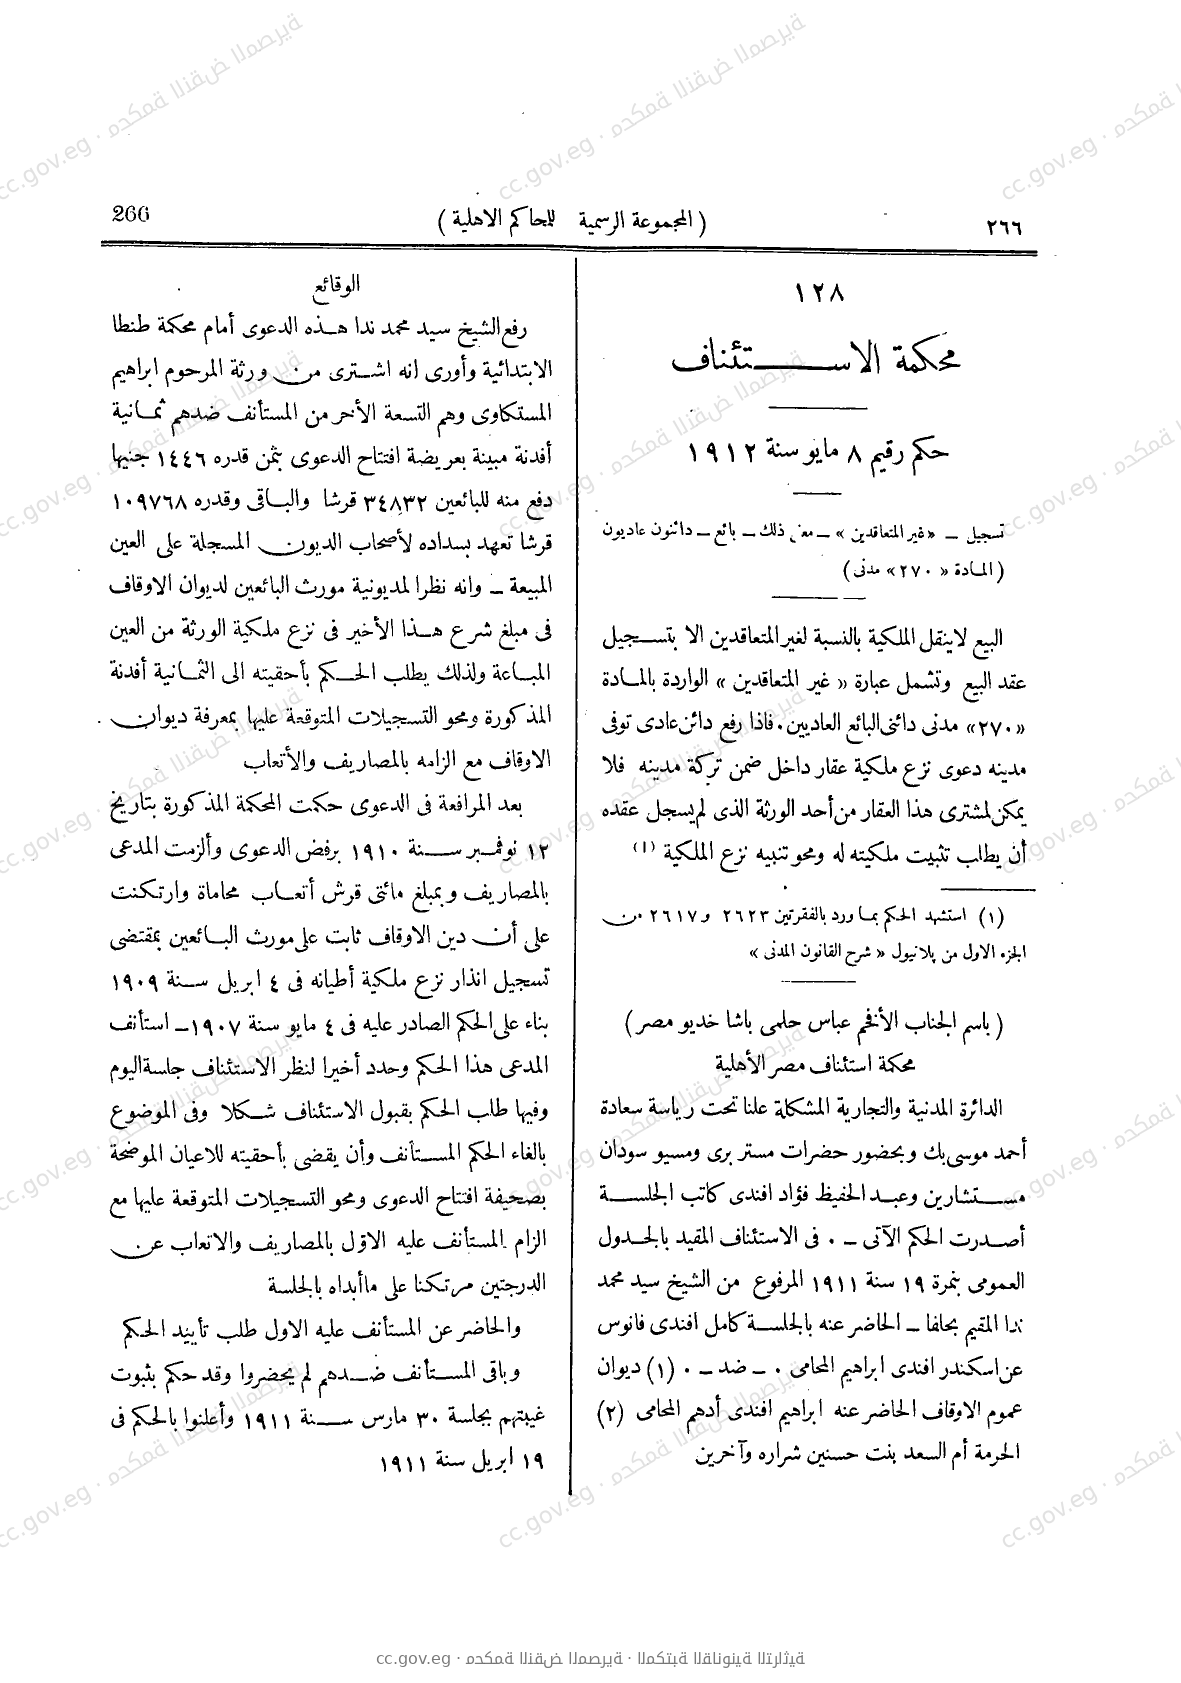 ٢٦٦
( المجموعة الرسمية للمحاكم الاهلية )
266
١٢٨
محكمة الاستئناف
حكم رقيم ٨ مايو سنة ١٩١٢
تسجيل – «غير المتعاقدين» – معنى ذلك – بائع – دائنون عاديون
(المادة «٢٧٠» مدنى)
البيع لا ينقل الملكية بالنسبة لغير المتعاقدين الا بتسجيل
عقد البيع وتشمل عبارة « غير المتعاقدين » الواردة بالمادة
«٢٧٠» مدنى دائنى البائع العاديين . فاذا رفع دائن عادى توفى
مدينه دعوى نزع ملكية عقار داخل ضمن تركة مدينه فلا
يمكن لمشترى هذا العقار من أحد الورثة الذى لم يسجل عقده
أن يطلب تثبيت ملكيته له ومحو تنبيه نزع الملكية (١)
(١) استشهد الحكم بما ورد بالفقرتين ٢٦٢٣ و٢٦١٧ من
الجزء الاول من پلانيول « شرح القانون المدنى »
( باسم الجناب الأفخم عباس حلمى باشا خديو مصر )
محكمة استئناف مصر الأهلية
الدائرة المدنية والتجارية المشكلة علنا تحت رياسة سعادة
أحمد موسى بك وبحضور حضرات مستر برى ومسيو سودان
مستشارين وعبد الحفيظ فؤاد افندى كاتب الجلسة
أصدرت الحكم الآتى – . فى الاستئناف المقيد بالجدول
العمومى بنمرة ١٩ سنة ١٩١١ المرفوع من الشيخ سيد محمد
ندا المقيم بحلفا – الحاضر عنه بالجلسة كامل افندى فانوس
عن اسكندر افندى ابراهيم المحامى . – ضد – . (١) ديوان
عموم الاوقاف الحاضر عنه ابراهيم افندى أدهم المحامى (٢)
الحرمة أم السعد بنت حسنين شراره وآخرين
الوقائع
رفع الشيخ سيد محمد ندا هذه الدعوى أمام محكمة طنطا
الابتدائية وأورى انه اشترى من ورثة المرحوم ابراهيم
المستكاوى وهم التسعة الأخر من المستأنف ضدهم ثمانية
أفدنة مبينة بعريضة افتتاح الدعوى بثمن قدره ١٤٤٦ جنيها
دفع منه للبائعين ٣٤٨٣٢ قرشا والباقى وقدره ١٠٩٧٦٨
قرشا تعهد بسداده لأصحاب الديون المسجلة على العين
المبيعة – وانه نظرا لمديونية مورث البائعين لديوان الاوقاف
فى مبلغ شرع هذا الأخير فى نزع ملكية الورثة من العين
المباعة ولذلك يطلب الحكم بأحقيته الى الثمانية أفدنة
المذكورة ومحو التسجيلات المتوقعة عليها بمعرفة ديوان
الاوقاف مع الزامه بالمصاريف والأتعاب
بعد المرافعة فى الدعوى حكمت المحكمة المذكورة بتاريخ
١٢ نوفمبر سنة ١٩١٠ برفض الدعوى وألزمت المدعى
بالمصاريف وبمبلغ مائتى قرش أتعاب محاماة وارتكنت
على أن دين الاوقاف ثابت على مورث البائعين بمقتضى
تسجيل انذار نزع ملكية أطيانه فى ٤ ابريل سنة ١٩٠٩
بناء على الحكم الصادر عليه فى ٤ مايو سنة ١٩٠٧ – استأنف
المدعى هذا الحكم وحدد أخيرا لنظر الاستئناف جلسة اليوم
وفيها طلب الحكم بقبول الاستئناف شكلا وفى الموضوع
بالغاء الحكم المستأنف وأن يقضى بأحقيته للاعيان الموضحة
بصحيفة افتتاح الدعوى ومحو التسجيلات المتوقعة عليها مع
الزام المستأنف عليه الاول بالمصاريف والاتعاب عن
الدرجتين مرتكنا على ما أبداه بالجلسة
والحاضر عن المستأنف عليه الاول طلب تأييد الحكم
وباقى المستأنف ضدهم لم يحضروا وقد حكم بثبوت
غيبتهم بجلسة ٣٠ مارس سنة ١٩١١ وأعلنوا بالحكم فى
١٩ ابريل سنة ١٩١١
cc.gov.eg · محكمة النقض المصرية · المكتبة القانونية التراثية